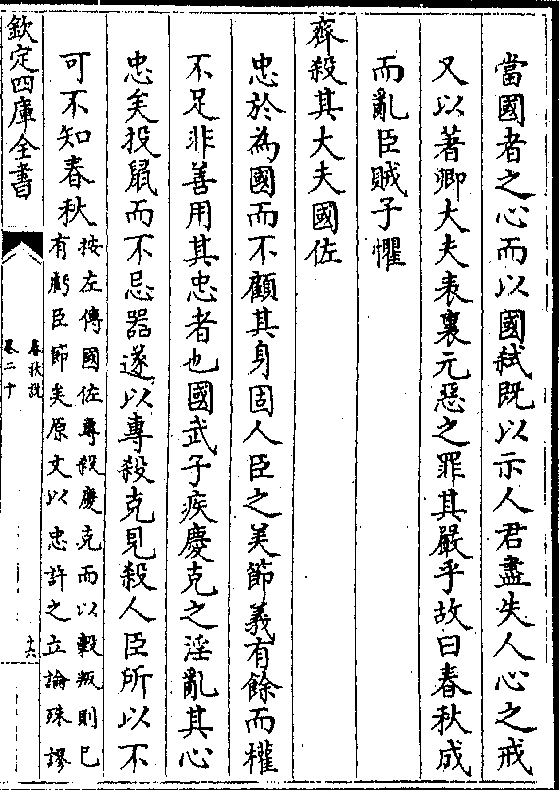 當國者之心而以國弑既以示人君盡失人心之戒
又以著卿大夫表裏元惡之罪其嚴乎故曰春秋成
而亂臣賊子懼
齊殺其大夫國佐
忠於為國而不顧其身固人臣之美節義有餘而權
不足非善用其忠者也國武子疾慶克之淫亂其心
忠矣投鼠而不忌器遂以專殺克見殺人臣所以不
可不知春秋
按左傳國佐專殺慶克而以穀叛則已
有虧臣節矣原文以忠許之立論殊謬
欽定四庫全書
春秋説
卷二十
十六